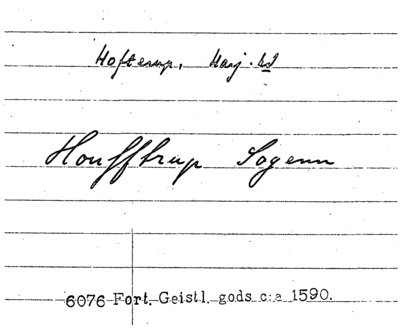 Hofterup, Harj. hd
Houfftrup Sogenn
6076 Fort. Geistl. gods c:a 1590.